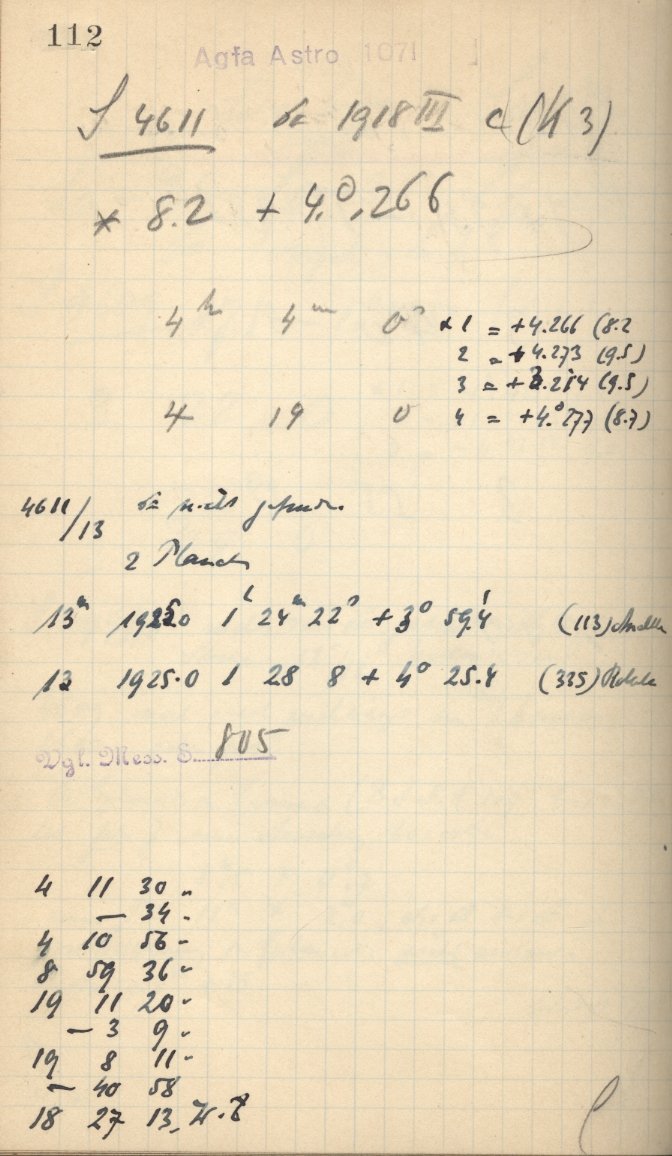 112
Agfa Astro 1071
S 4611 1918 III (K 3)
* 8.2 + 4.°266
4h 4m 0s
* 1 = +4.266 (8.2
2 = +4.273 (9.5)
3 = (9.5)
4 19 0
4 = +4.°277 (8.7)
4611/13
2
13m 1925.0 1h 24m 22s +3° 59.4' (113)
13 1925.0 1 28 8 + 4° 25.4 (335)
Vgl. Mess. S. 805
4 11 30
— 34
4 10 56
8 59 36
19 11 20
— 3 9
19 8 11
— 40 58
18 27 13